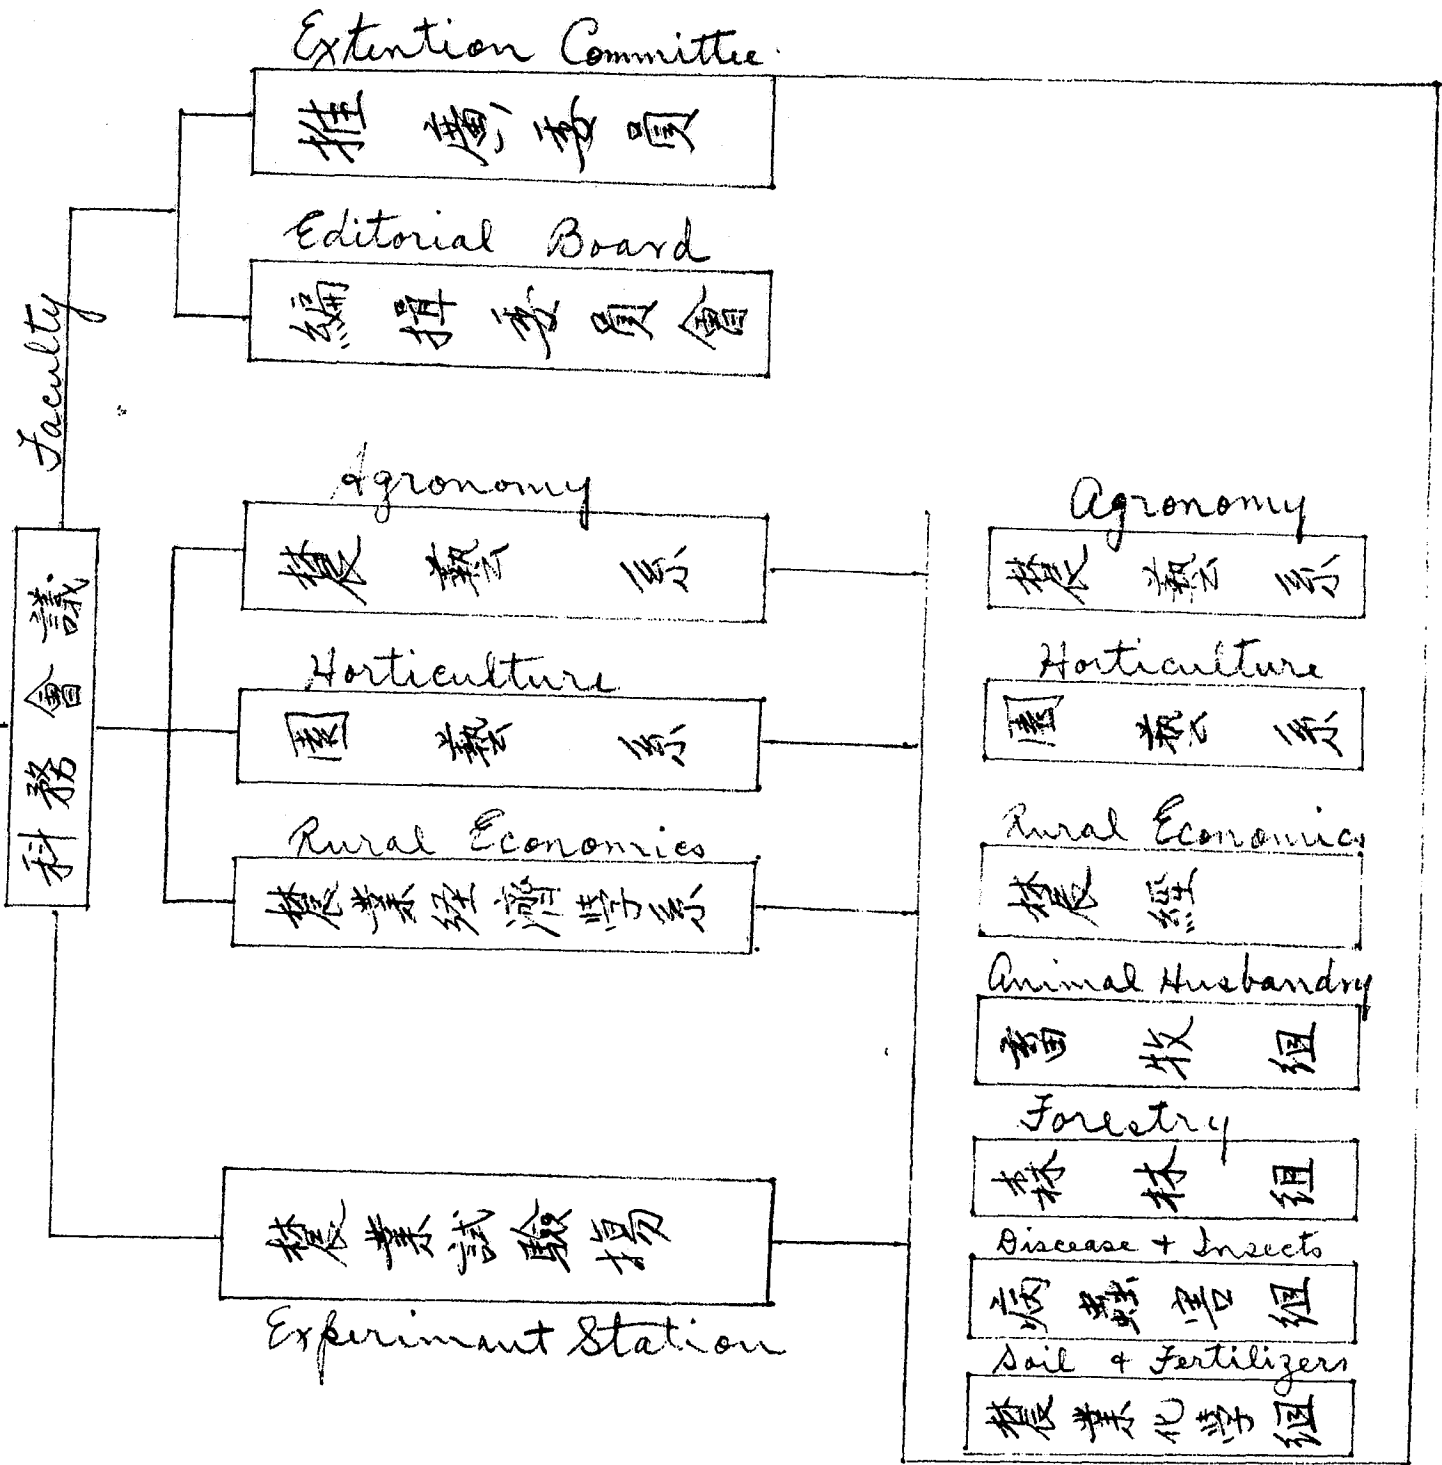 Extention Committee
推廣委員
Editorial Board
編揖委員會
Faculty
科務會議
Agronomy
藝系
Horticulture
園藝系
Rural Economics
業经濟学系
業試驗揚
Experimant Station
Agronomy
藝系
Horticulture
園藝系
Rural Economics
經
Animal Husbandry
畜牧組
Forestry
森林組
Discease + Insects
病虫害組
Soil & Fertilizers
業化学組